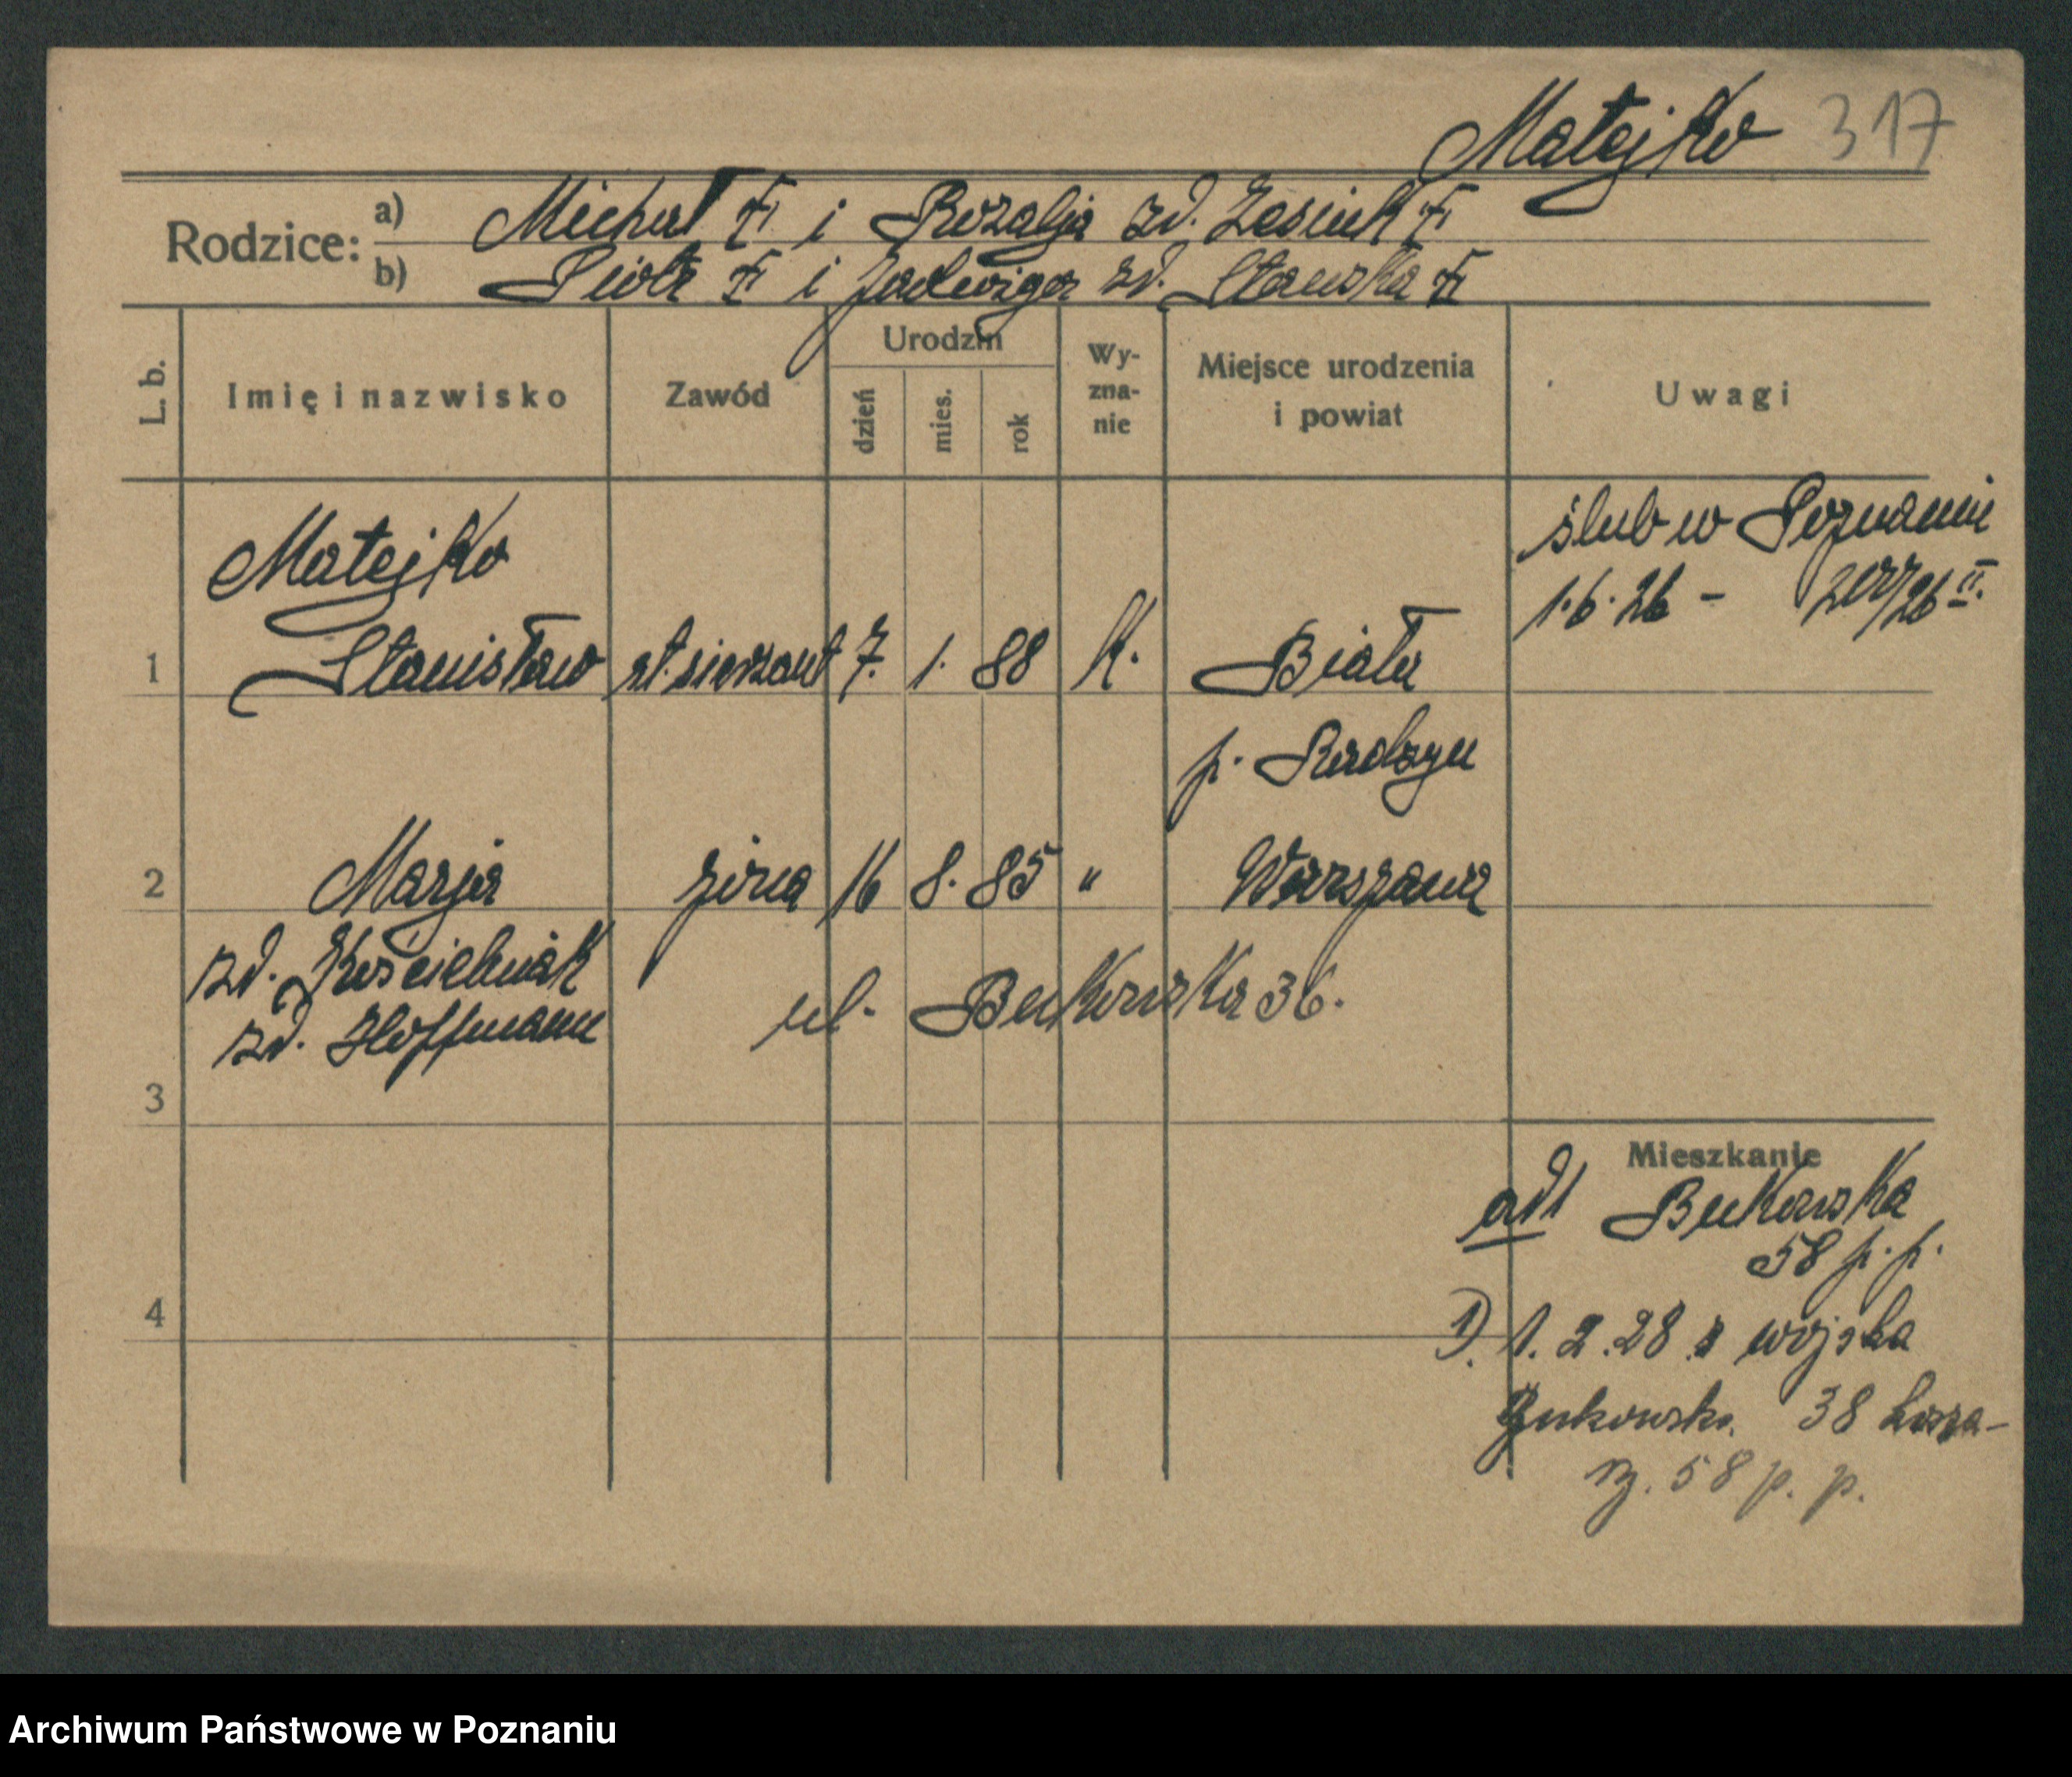 Matejko 317
Rodzice: a) Michał i Rozalja zd. Lasiuk
b) Piotr i Jadwiga zd. Stawska
L. b. Imię i nazwisko Zawód Urodzin dzień mies. rok Wy-zna-nie Miejsce urodzenia i powiat Uwagi
ślub w Poznaniu
1.6.26 - /26 II.
Matejko
1 Stanisław st. sierżant 7. 1. 88 K. Biała
p. Radzyń
2 Marja żona 16 8. 85 " Warszawa
zd. Kościelniak
zd. Hoffmann
ul. Bukowska 36.
3
Mieszkanie
ad 1 Bukowska
58 p. p.
4
1). 1. 2. 28 z wojska
Bukowska 38 kosza-
rz. 58 p. p.
Archiwum Państwowe w Poznaniu